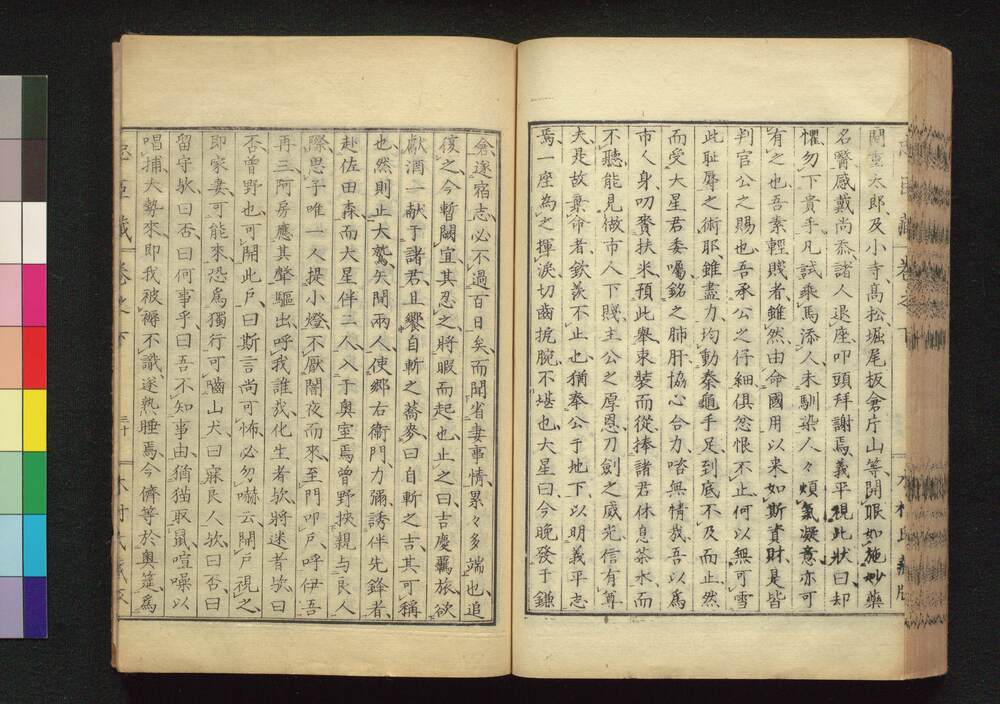 間重太郎及小寺高松堀尾板倉片山等、開眼如施妙藥
名醫感戴尚忝、諸人退座叩頭拜謝焉、義平視此狀曰却
懼、勿下貴手、凡試乘馬添人、未馴染人々煩氣凝意、亦可
有之也、吾素輕賤者、雖然由命國用以来、如斯資財、是皆
判官公之賜也、吾承公之仔細、俱忿恨不止、何以無可雪
此恥辱之術耶、雖盡力、均動秦龜手足、到底不及而止、然
而受大星君委囑、銘之肺肝、協心合力、啻無情哉、吾以為
市人身、叨賚扶米、預此舉、束裝而從、捧諸君休息茶水、而
不聽、能見做市人下賤、主公之厚恩、刀劍之威光、信有尊
大、是故棄命者、欽羨不止也、猶奉公于地下、以明義平志
焉、一座為之揮淚、切齒扼腕、不堪也、大星曰、今晚發于鎌
倉、遂宿志、必不過百日矣、而聞省妻事情、累々多端也、追
復之、今暫闕、宜其忍之、將暇而起也、止之曰、吉慶羈旅、欲
獻酒一献于諸君、且饗自斬之蕎麥、曰自斬之吉、其可稱
也、然則止大鷲矢間兩人、使鄉右衛門力彌誘伴先鋒者、
赴佐田森、而大星伴二人、入于奥室焉、曾野挾親与良人
際、思子唯一人、提小燈、不厭闇夜而來、至門叩戶、呼伊吾
再三、阿房應其聲驅出、呼我誰哉、化生者欤、將迷者欤、曰
否、曾野也、可開此戶、曰斯言尚可怖、必勿嚇云、開戶視之
即家妻、可能來、恐為獨行可嚙山犬、曰寐良人欤、曰否、曰
留守欤、曰否、曰何事乎、曰吾不知事由、猶猫取鼠、喧噪以
唱捕、大勢來、即我被褥不識、遂熟睡焉、今儕等於奥筵為
忠臣藏 卷之下 三十 木村氏藏版